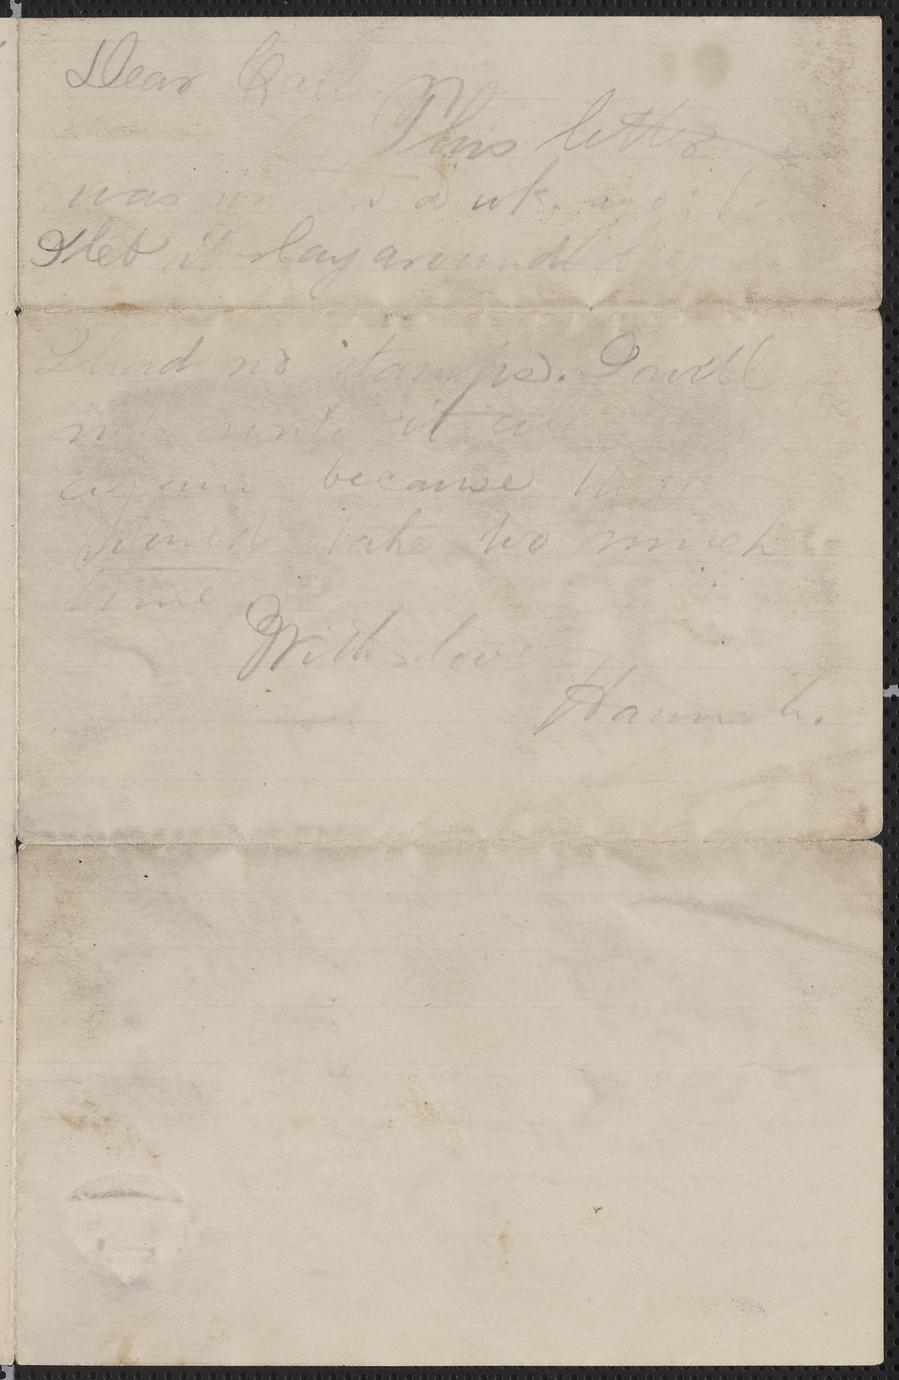 Dear
This letter
was a wk. ago;
I let it lay around
I had no stamps. I will
not write it all
again because
would take too much
time
With love
Hannah.